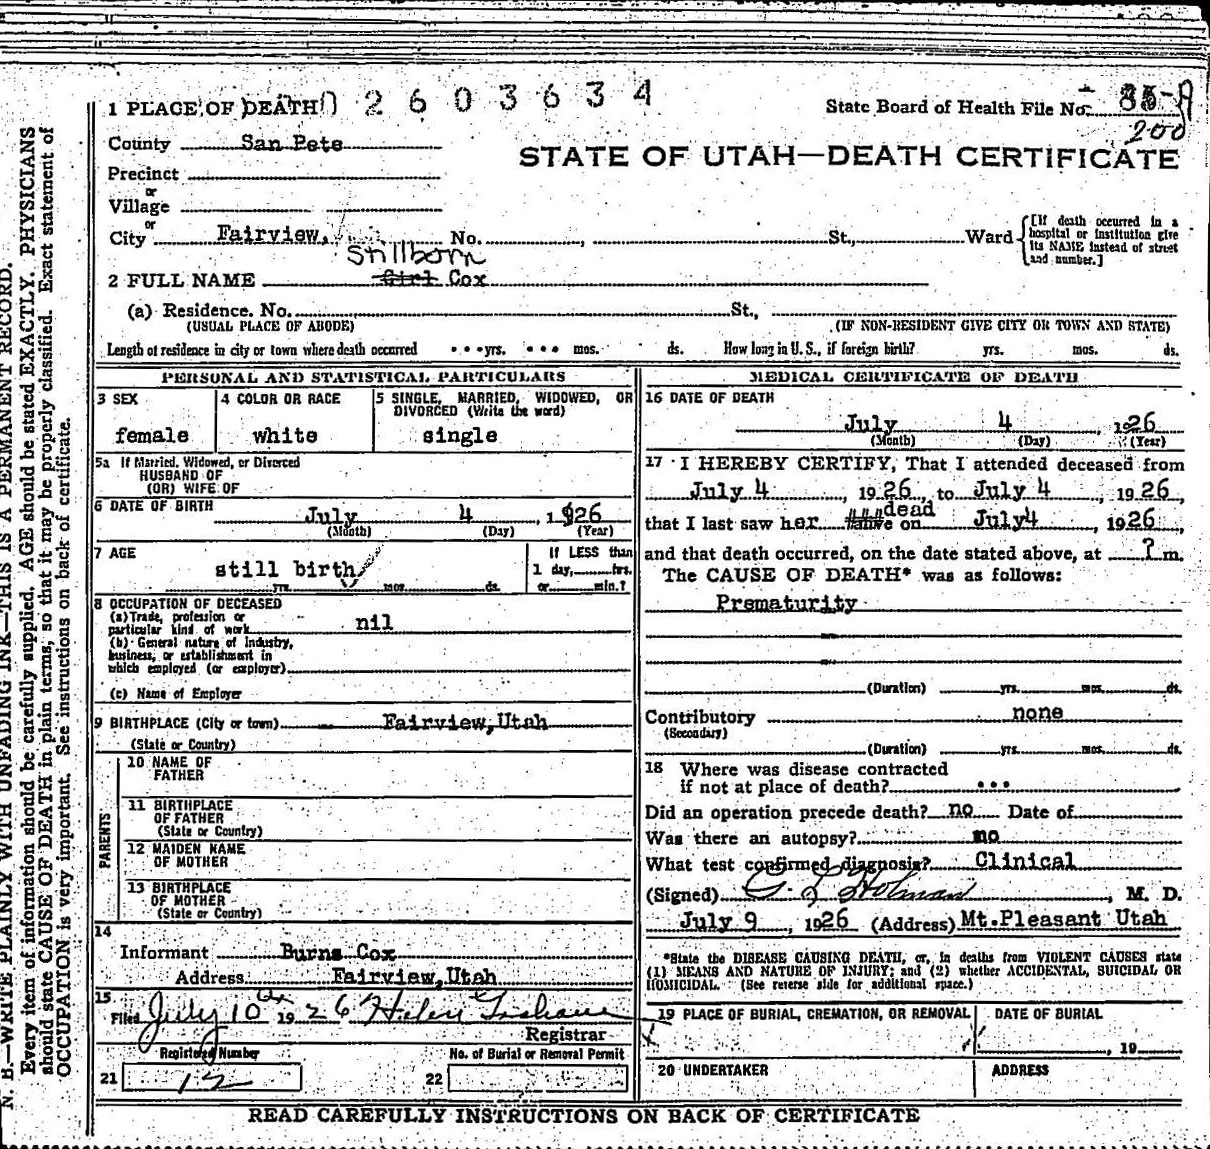 1 PLACE OF DEATH 0 2 6 0 3 6 3 4
State Board of Health File No. 85-A
200
County San Pete
STATE OF UTAH—DEATH CERTIFICATE
Precinct
or
Village
or
City Fairview, No. , St., Ward
[If death occurred in a hospital or institution give its NAME instead of street and number.]
Stillborn
2 FULL NAME Girl Cox
(a) Residence. No. St.,
(USUAL PLACE OF ABODE) (IF NON-RESIDENT GIVE CITY OR TOWN AND STATE)
Length of residence in city or town where death occurred ...yrs. ...mos. ds. How long in U. S., if foreign birth? yrs. mos. ds.
PERSONAL AND STATISTICAL PARTICULARS
3 SEX
female
4 COLOR OR RACE
white
5 SINGLE, MARRIED, WIDOWED, OR
DIVORCED (Write the word)
single
5a If Married, Widowed, or Divorced
HUSBAND OF
(OR) WIFE OF
6 DATE OF BIRTH
July 4 , 1926
(Month) (Day) (Year)
7 AGE
still birth
yrs. mos. ds.
If LESS than
1 day, hrs.
or min.?
8 OCCUPATION OF DECEASED
(a) Trade, profession or
particular kind of work nil
(b) General nature of Industry,
business, or establishment in
which employed (or employer)
(c) Name of Employer
9 BIRTHPLACE (City or town) Fairview,Utah
(State or Country)
PARENTS
10 NAME OF
FATHER
11 BIRTHPLACE
OF FATHER
(State or Country)
12 MAIDEN NAME
OF MOTHER
13 BIRTHPLACE
OF MOTHER
(State or Country)
14
Informant Burns Cox
Address Fairview,Utah
15
Filed July 10 1926 Helen
Registrar
Registered Number
21 12
No. of Burial or Removal Permit
22
MEDICAL CERTIFICATE OF DEATH
16 DATE OF DEATH
July 4 , 1926
(Month) (Day) (Year)
17 I HEREBY CERTIFY, That I attended deceased from
July 4 , 1926, to July 4 , 1926,
that I last saw her dead on July4 , 1926
and that death occurred, on the date stated above, at ? m.
The CAUSE OF DEATH* was as follows:
Prematurity
(Duration) yrs. mos. ds.
Contributory none
(Secondary)
(Duration) yrs. mos. ds.
18 Where was disease contracted
if not at place of death? ...
Did an operation precede death? no Date of
Was there an autopsy? no
What test confirmed diagnosis? Clinical
(Signed) Holman , M. D.
July 9 , 1926 (Address) Mt.Pleasant Utah
*State the DISEASE CAUSING DEATH, or, in deaths from VIOLENT CAUSES state
(1) MEANS AND NATURE OF INJURY; and (2) whether ACCIDENTAL, SUICIDAL OR
HOMICIDAL. (See reverse side for additional space.)
19 PLACE OF BURIAL, CREMATION, OR REMOVAL
DATE OF BURIAL
, 19
20 UNDERTAKER
ADDRESS
READ CAREFULLY INSTRUCTIONS ON BACK OF CERTIFICATE
N. B.—WRITE PLAINLY WITH UNFADING INK—THIS IS A PERMANENT RECORD.
Every item of information should be carefully supplied. AGE should be stated EXACTLY. PHYSICIANS
should state CAUSE OF DEATH in plain terms, so that it may be properly classified. Exact statement of
OCCUPATION is very important. See instructions on back of certificate.